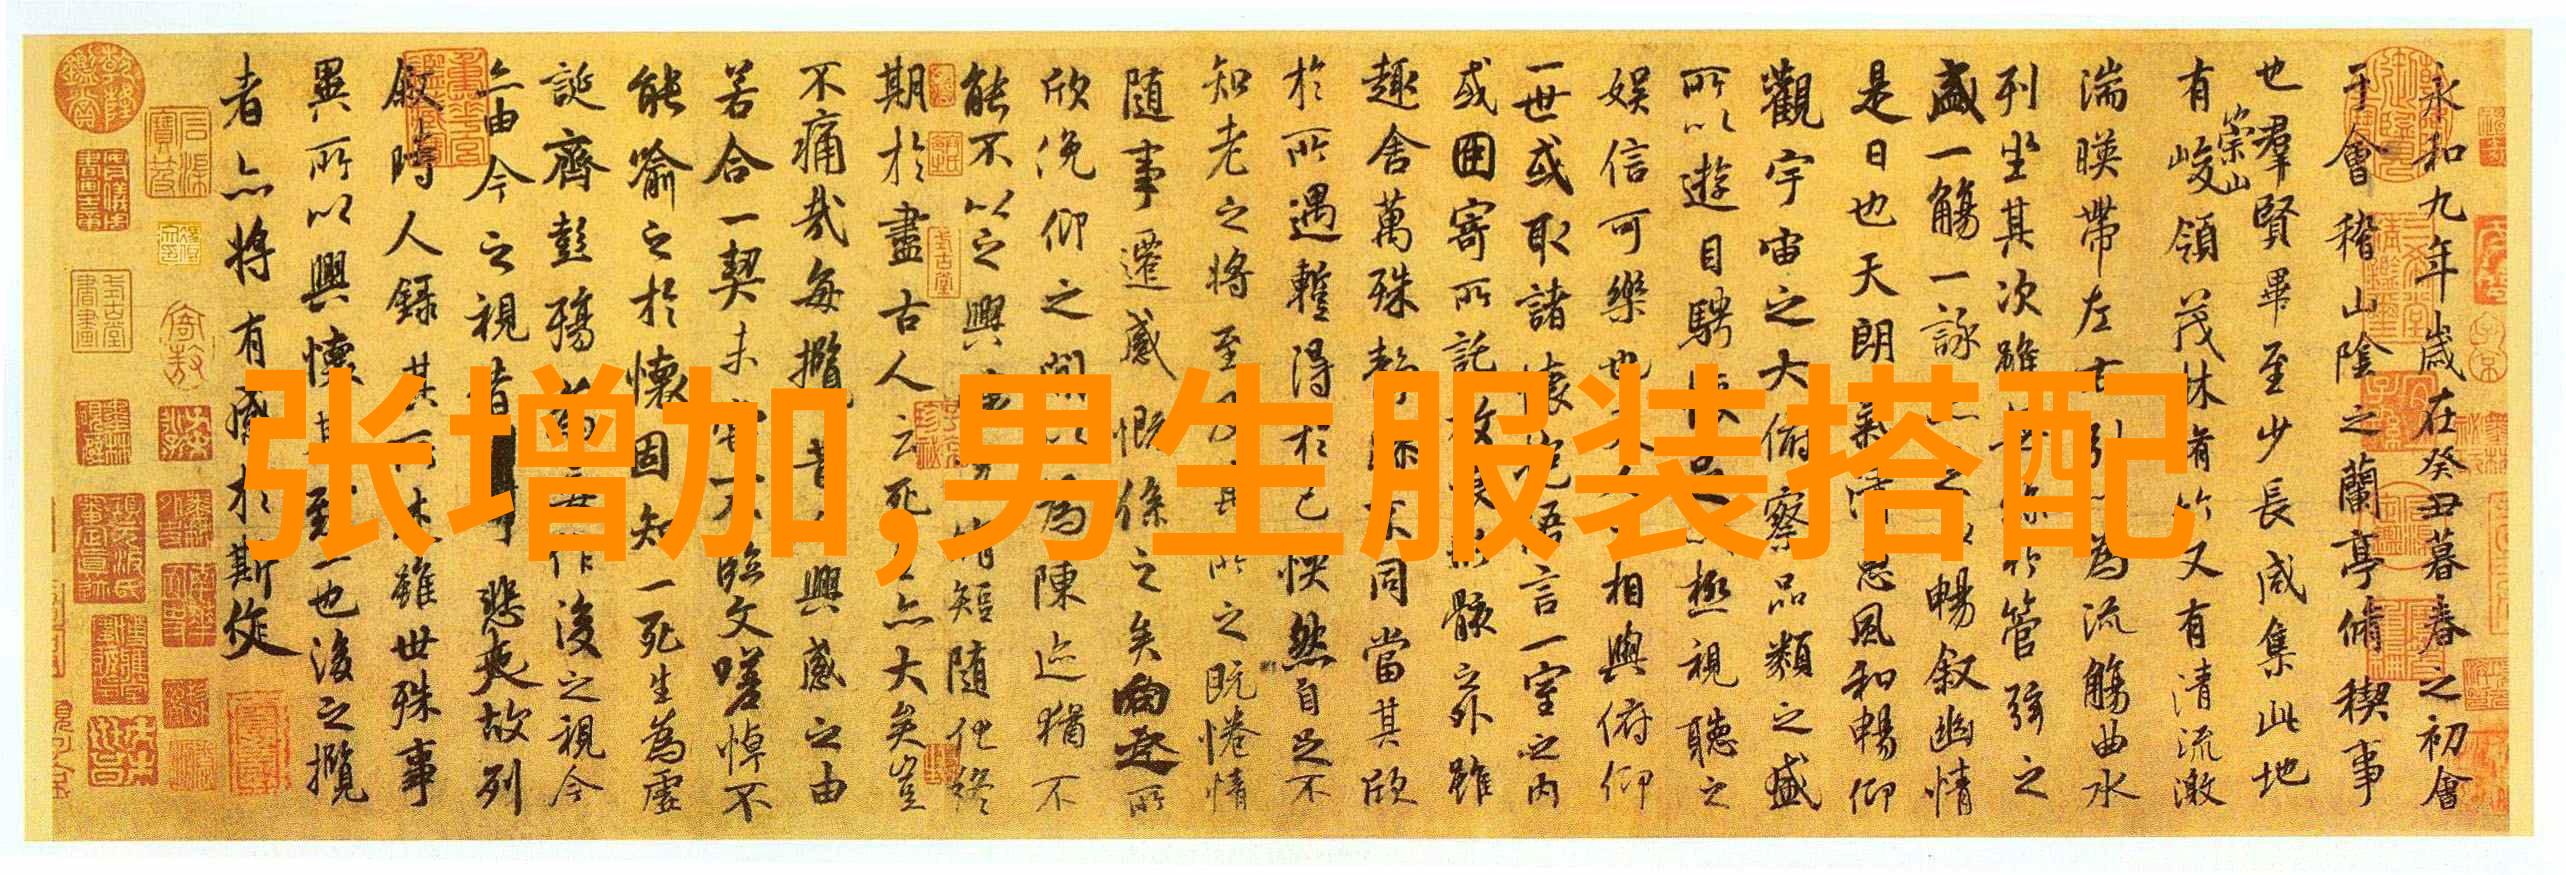 张增加,男生服装搭配
永和九年歲在癸丑暮春之初會
于會稽山陰之蘭亭脩稧事
也羣賢畢至少長咸集此地
有崇山峻領茂林脩竹又有清流激
湍暎帶左右引以為流觴曲水
列坐其次雖無絲竹管弦之
盛一觴一詠亦足以暢叙幽情
是日也天朗氣清惠風和暢仰
觀宇宙之大俯察品類之盛
所以遊目騁懷足以極視聽之
娛信可樂也夫人之相與俯仰
一世或取諸懷抱悟言一室之內
或因寄所託放浪形骸之外雖
趣舍萬殊靜躁不同當其欣
於所遇暫得於己怏然自足不
知老之將至及其所之既惓情
隨事遷感慨係之矣向之所
欣俛仰之間以為陳迹猶不
能不以之興懷況脩短隨化終
期於盡古人云死生亦大矣豈
不痛哉每攬昔人興感之由
若合一契未嘗不臨文嗟悼不
能喻之於懷固知一死生為虛
誕齊彭殤為妄作後之視今
亦由今之視昔悲夫故列
叙時人錄其所述雖世殊事
異所以興懷其致一也後之攬
者亦將有感於斯文